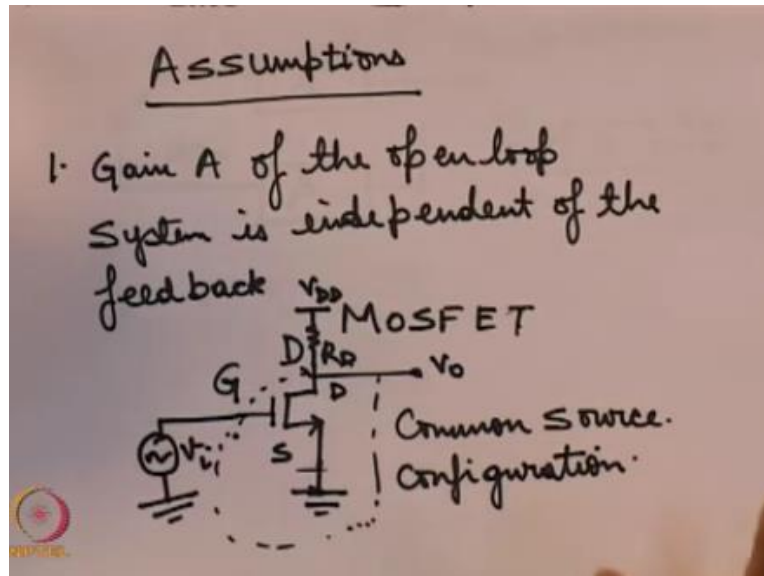 Assumptions
1. Gain A of the open loop
System is independent of the
feedback
VDD
MOSFET
D RD
Vo
G
D
Vi
S
Common Source.
Configuration.